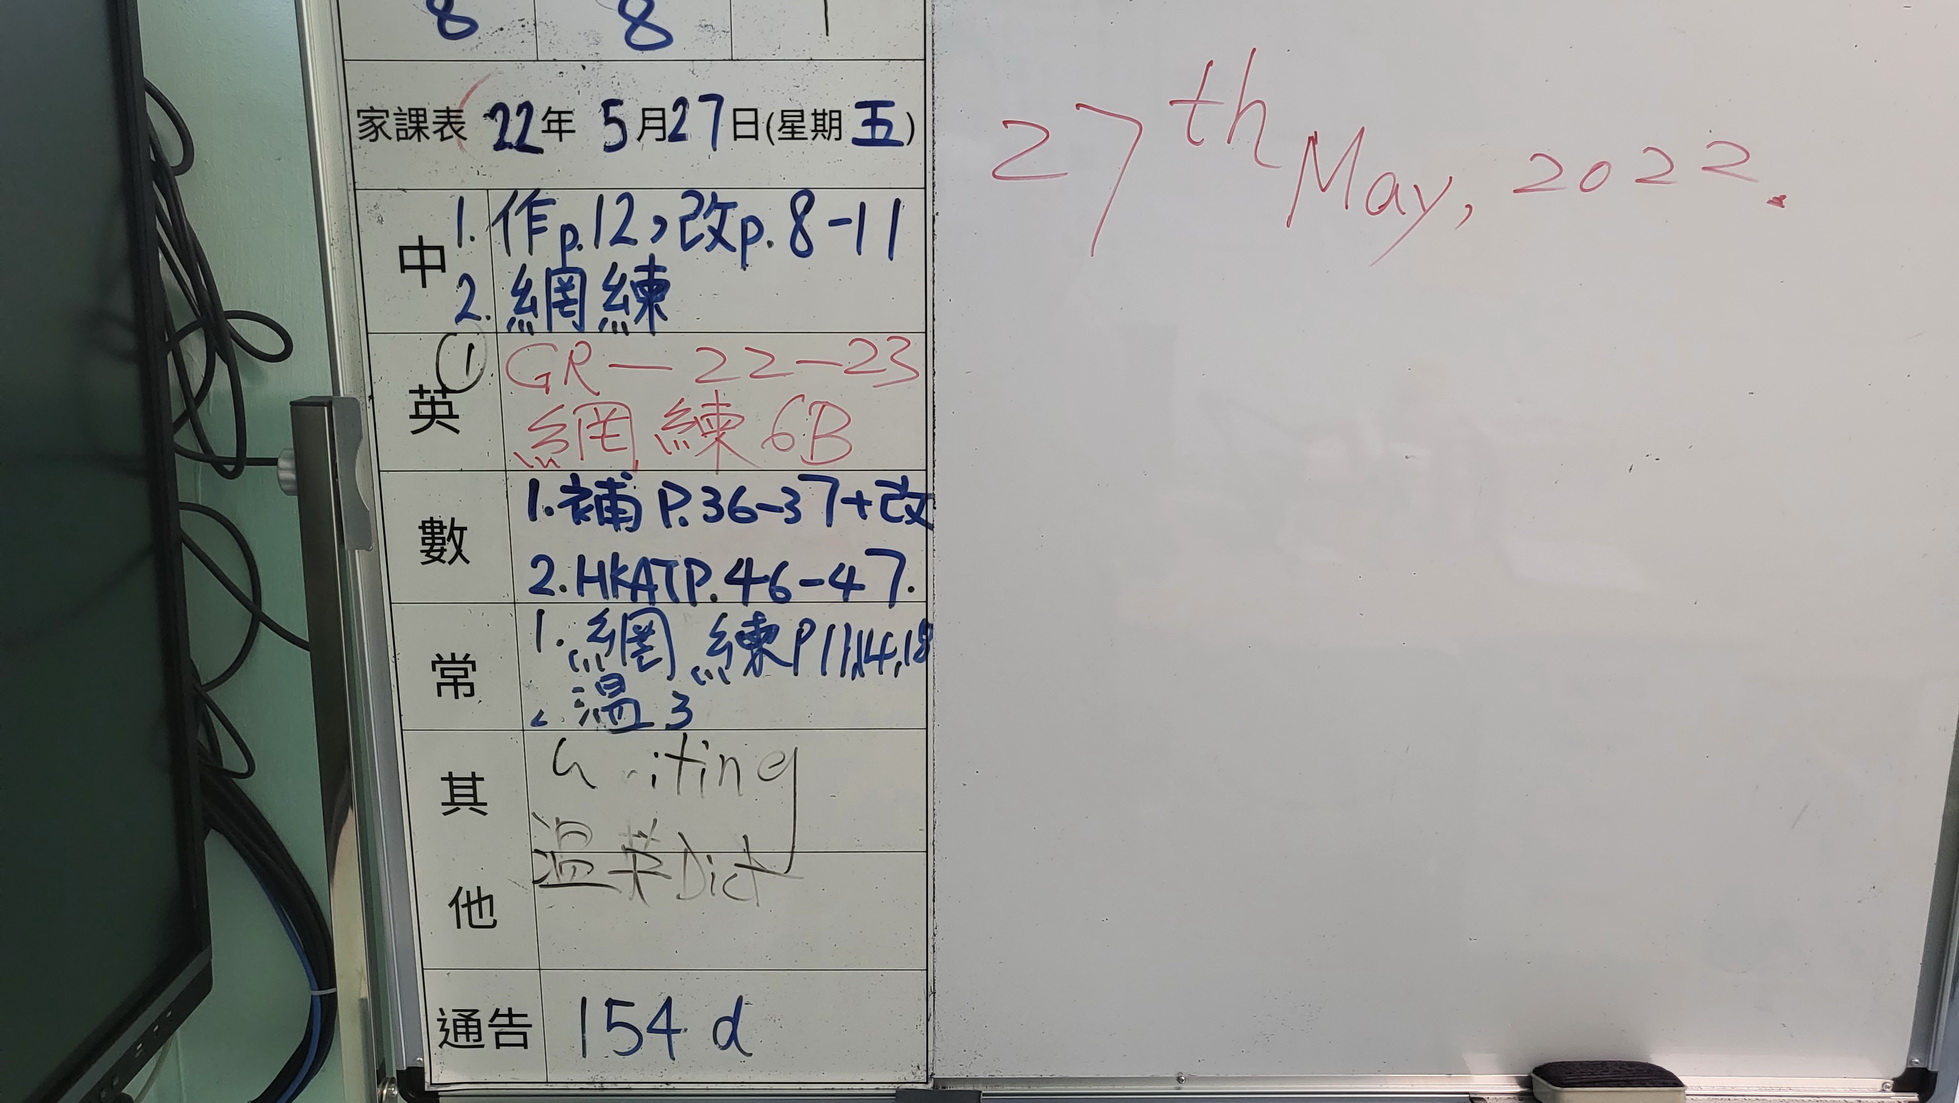 8 8 1
家課表 22年 5月27日(星期五)
中
1. 作p.12,改p.8-11
2. 網練
英
① GR—22-23
網練6B
數
1. 補P.36-37+改
2. HKATP.46-47.
常
1. 網練P11,14,18
2. 溫3
其他
writing
溫英Dict
通告 154 d
27th May, 2022.